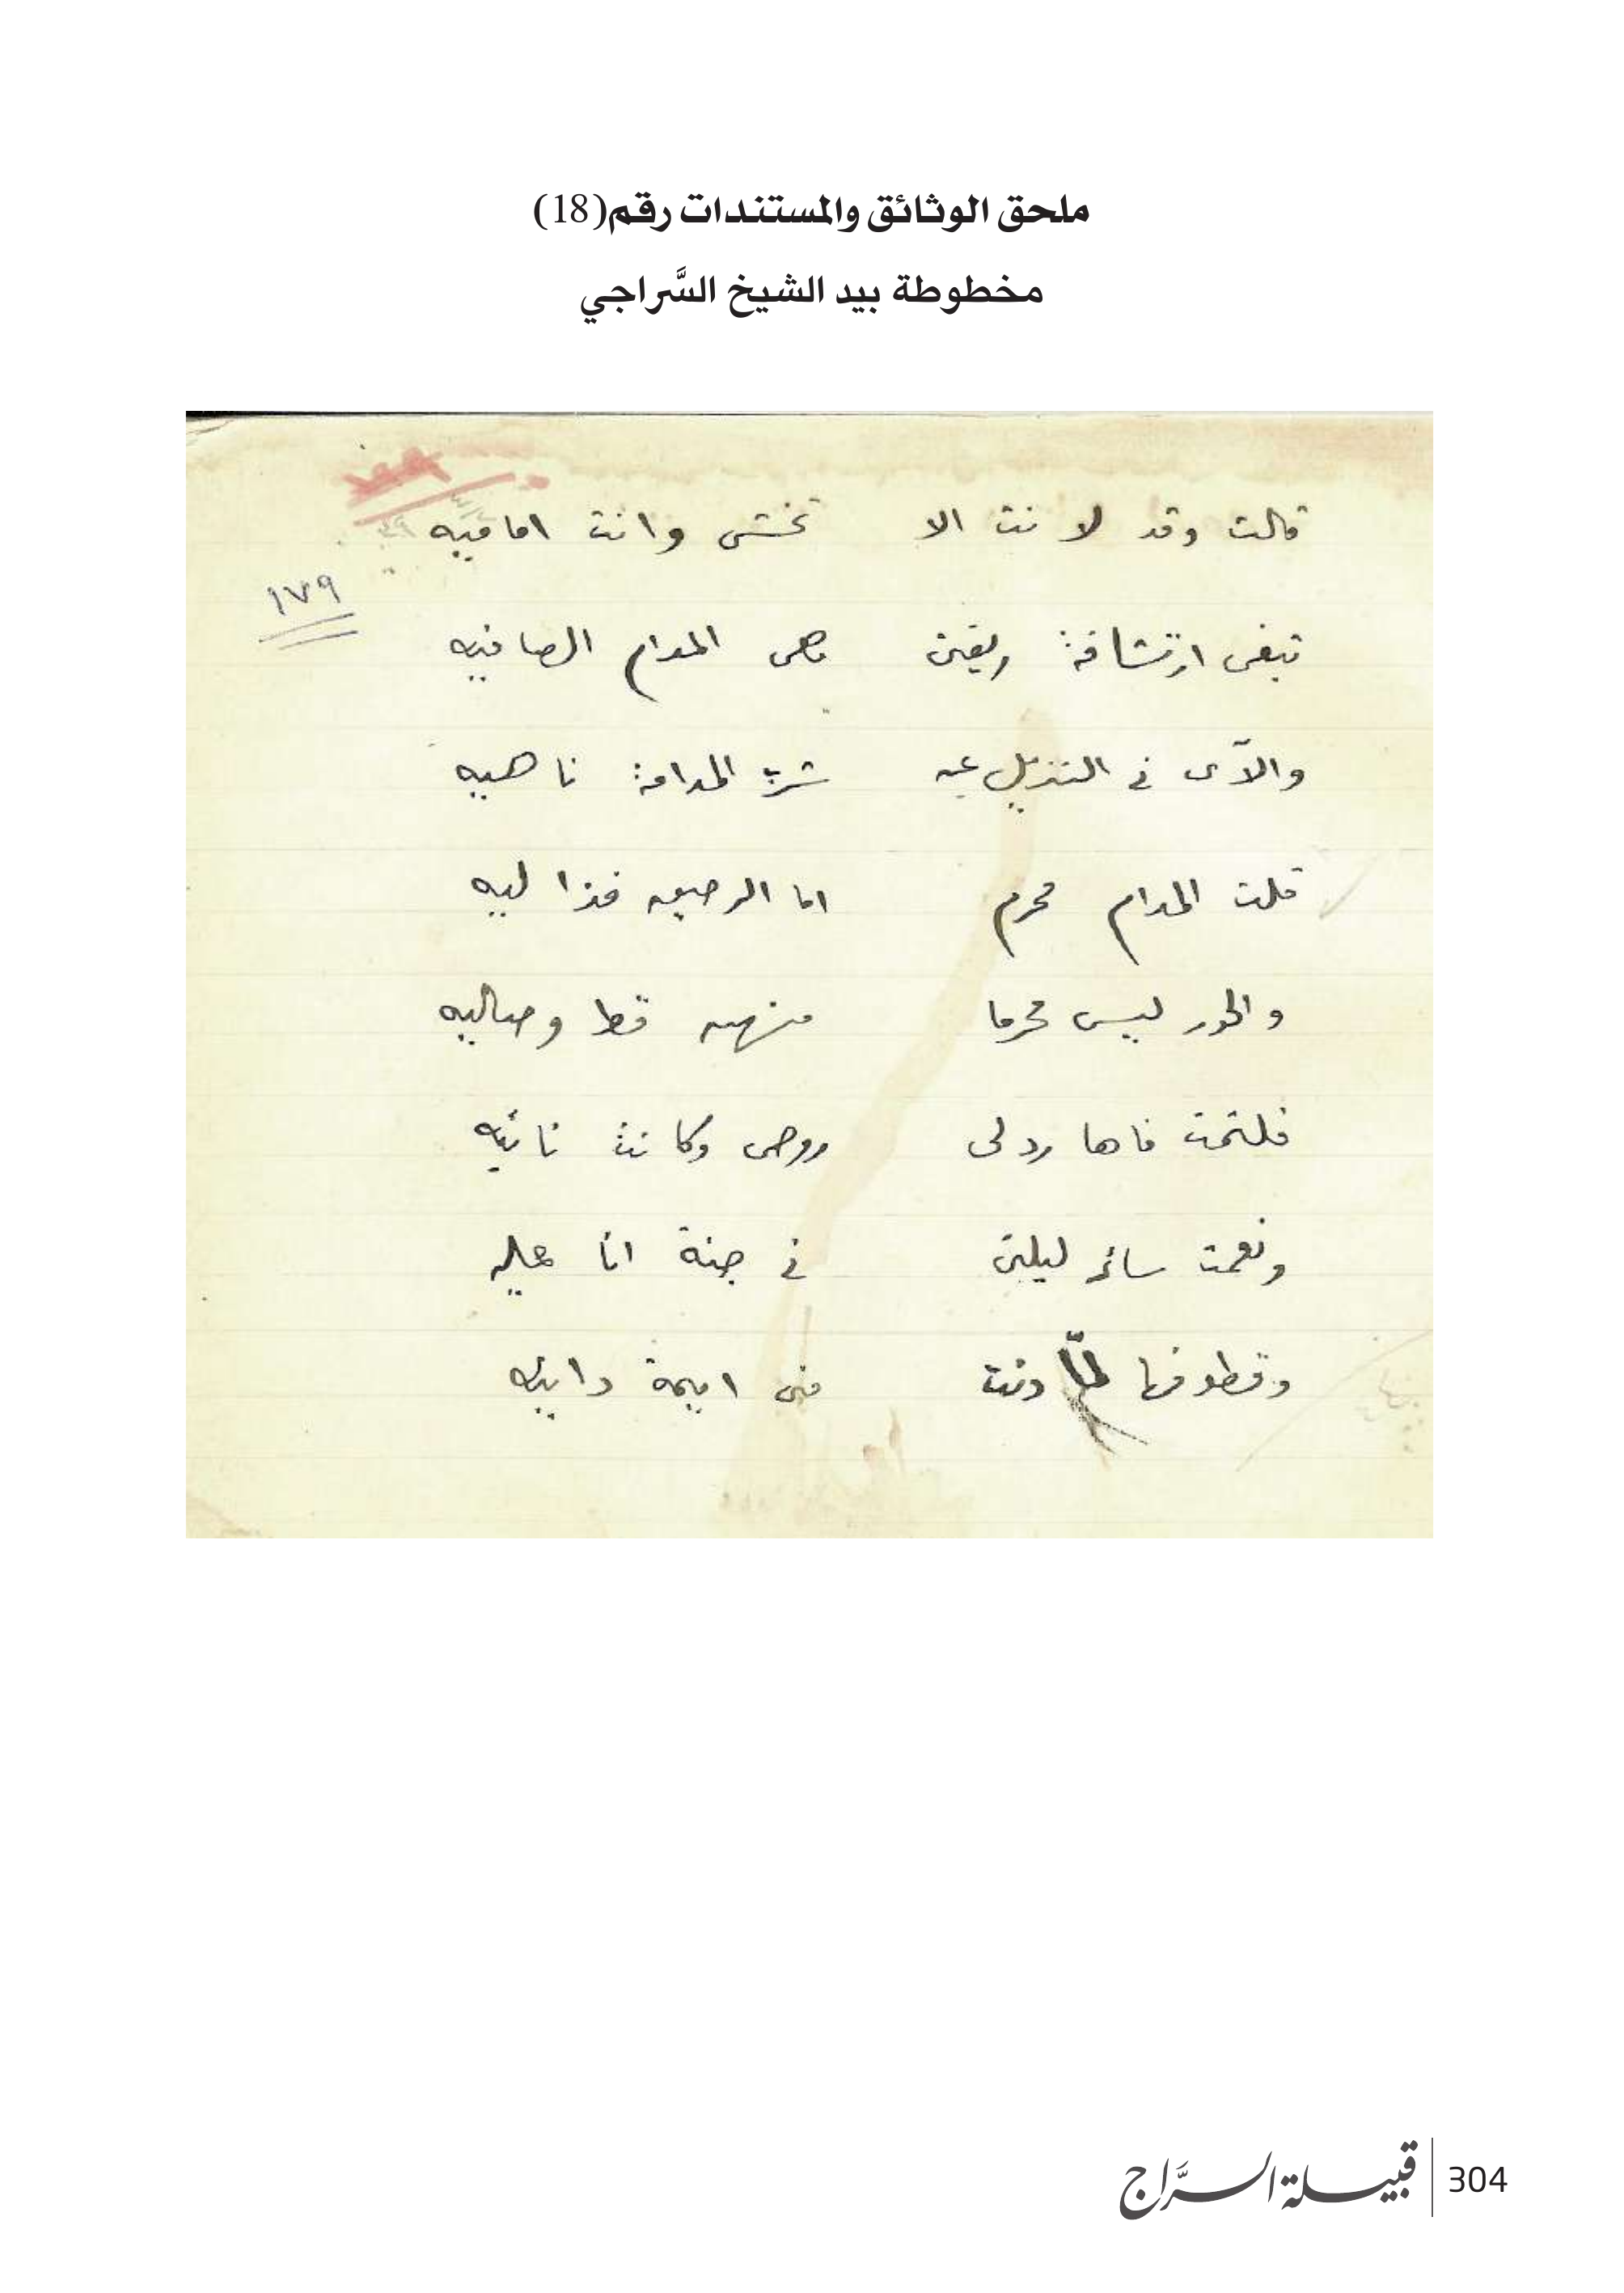 ملحق الوثائق والمستندات رقم(18)
مخطوطة بيد الشيخ السَّراجي
قالت وقد لا نت الا تخشى وانت اماميه
١٧٩
تبغى ارتشافة ريقتى وهى المدام الصافيه
والآى فى التنزيل عن شرب المدامة ناهيه
قلت المدام محرم اما الرحيق فذا ليه
والحور ليس محرما منهن قط وصاليه
فلثمت فاها رد لى روحى وكانت نائيه
ونعمت سائر ليلتى فى جنة انا عاليه
وقطوفها لمّا دنت منى دانيه
304 قبيلة السرَّاج